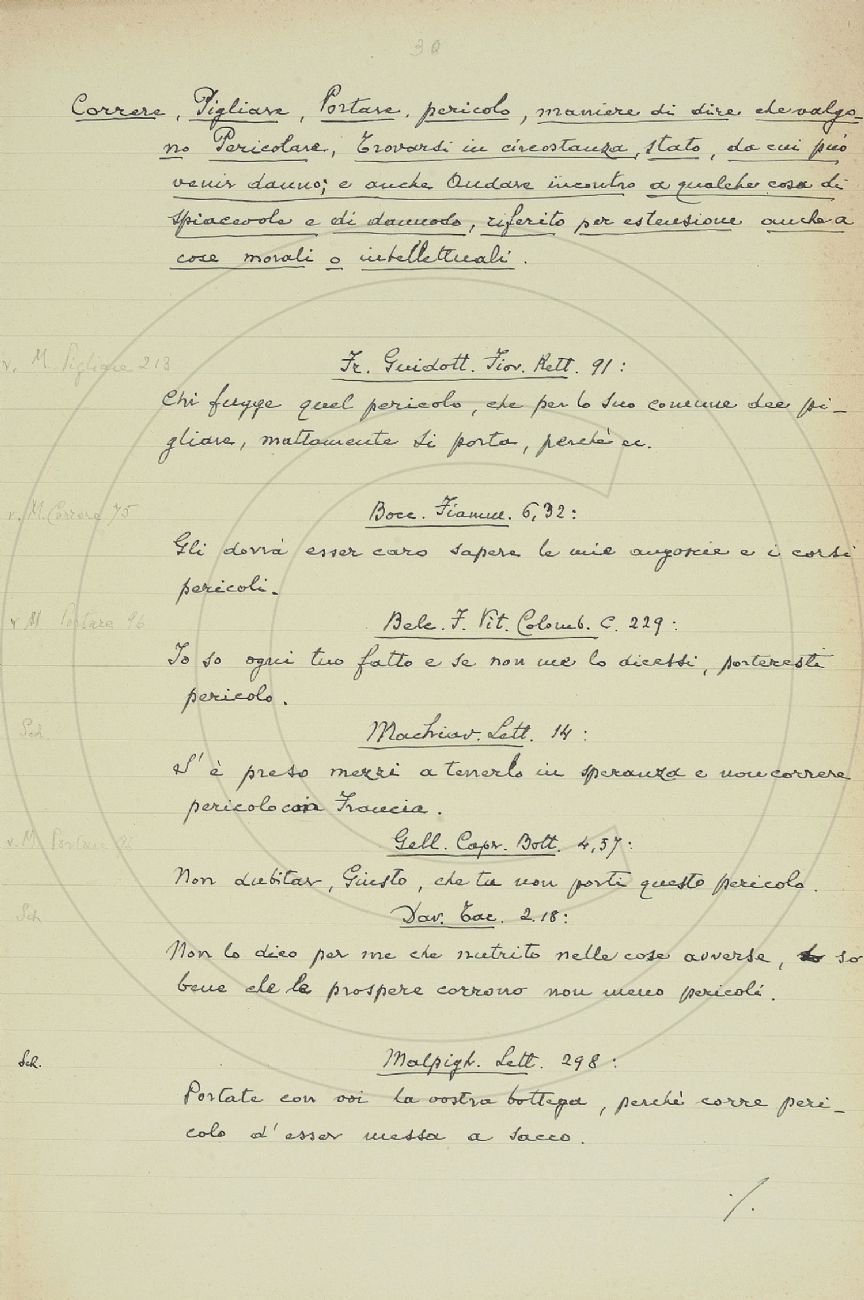 30
Correre, Pigliare, Portare, pericolo, maniere di dire che valgo-
no Pericolare, Trovarsi in circostanza, stato, da cui può
venir danno; e anche Andare incontro a qualche cosa di
spiacevole e di dannoso, riferito per estensione anche a
cose morali o intellettuali.
v. M. Pigliare 213
Fr. Guidott. Fior. Rett. 91:
Chi fugge quel pericolo, che per lo suo comune dee pi-
gliare, mattamente si porta, perchè ec.
v. M. Correre 75
Bocc. Fiamm. 6,32:
Gli dovrà esser caro sapere le mie angoscie e i corsi
pericoli.
v M Portare 96
Belc. F. Vit. Colomb. C. 229:
Io so ogni tuo fatto e se non me lo dicessi, porteresti
pericolo.
Sch.
Machiav. Lett. 14:
S'è preso mezzi a tenerlo in speranza e non correre
pericolo con Francia.
v. M. Portare 95
Gell. Capr. Bott. 4,57:
Non dubitar, Giusto, che tu non porti questo pericolo.
Sch
Dav. Tac. 2.18:
Non lo dico per me che nutrito nelle cose avverse, so
bene che le prospere corrono non meno pericoli.
Sch.
Malpigh. Lett. 298:
Portate con voi la vostra bottega, perchè corre peri-
colo d'esser messa a sacco.
./.